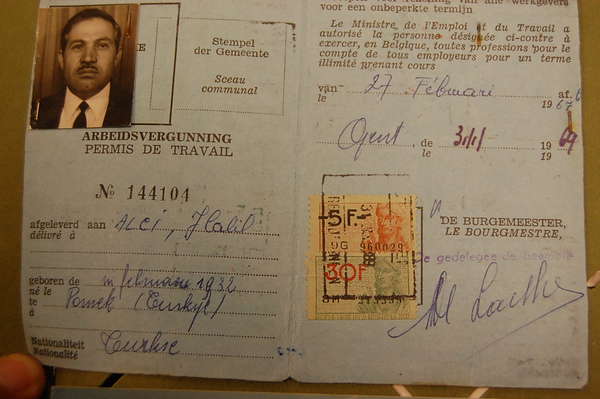 Stempel
der Gemeente
Sceau
communal
ARBEIDSVERGUNNING
PERMIS DE TRAVAIL
No 144104
afgeleverd aan ALCI, Halil
délivré à
geboren de in februari 1932
né le
te
à
Nationaliteit
Nationalité
Turkse
voor een onbeperkte termijn
Le Ministre, de l'Emploi et du Travail a
autorisé la personne désignée ci-contre à
exercer, en Belgique, toutes professions pour le
compte de tous employeurs pour un terme
illimité prenant cours
van 27 Februari af.
le 1967
Gent, de 1969
le 19
5 F.
960029
30F
DE BURGEMEESTER,
LE BOURGMESTRE,